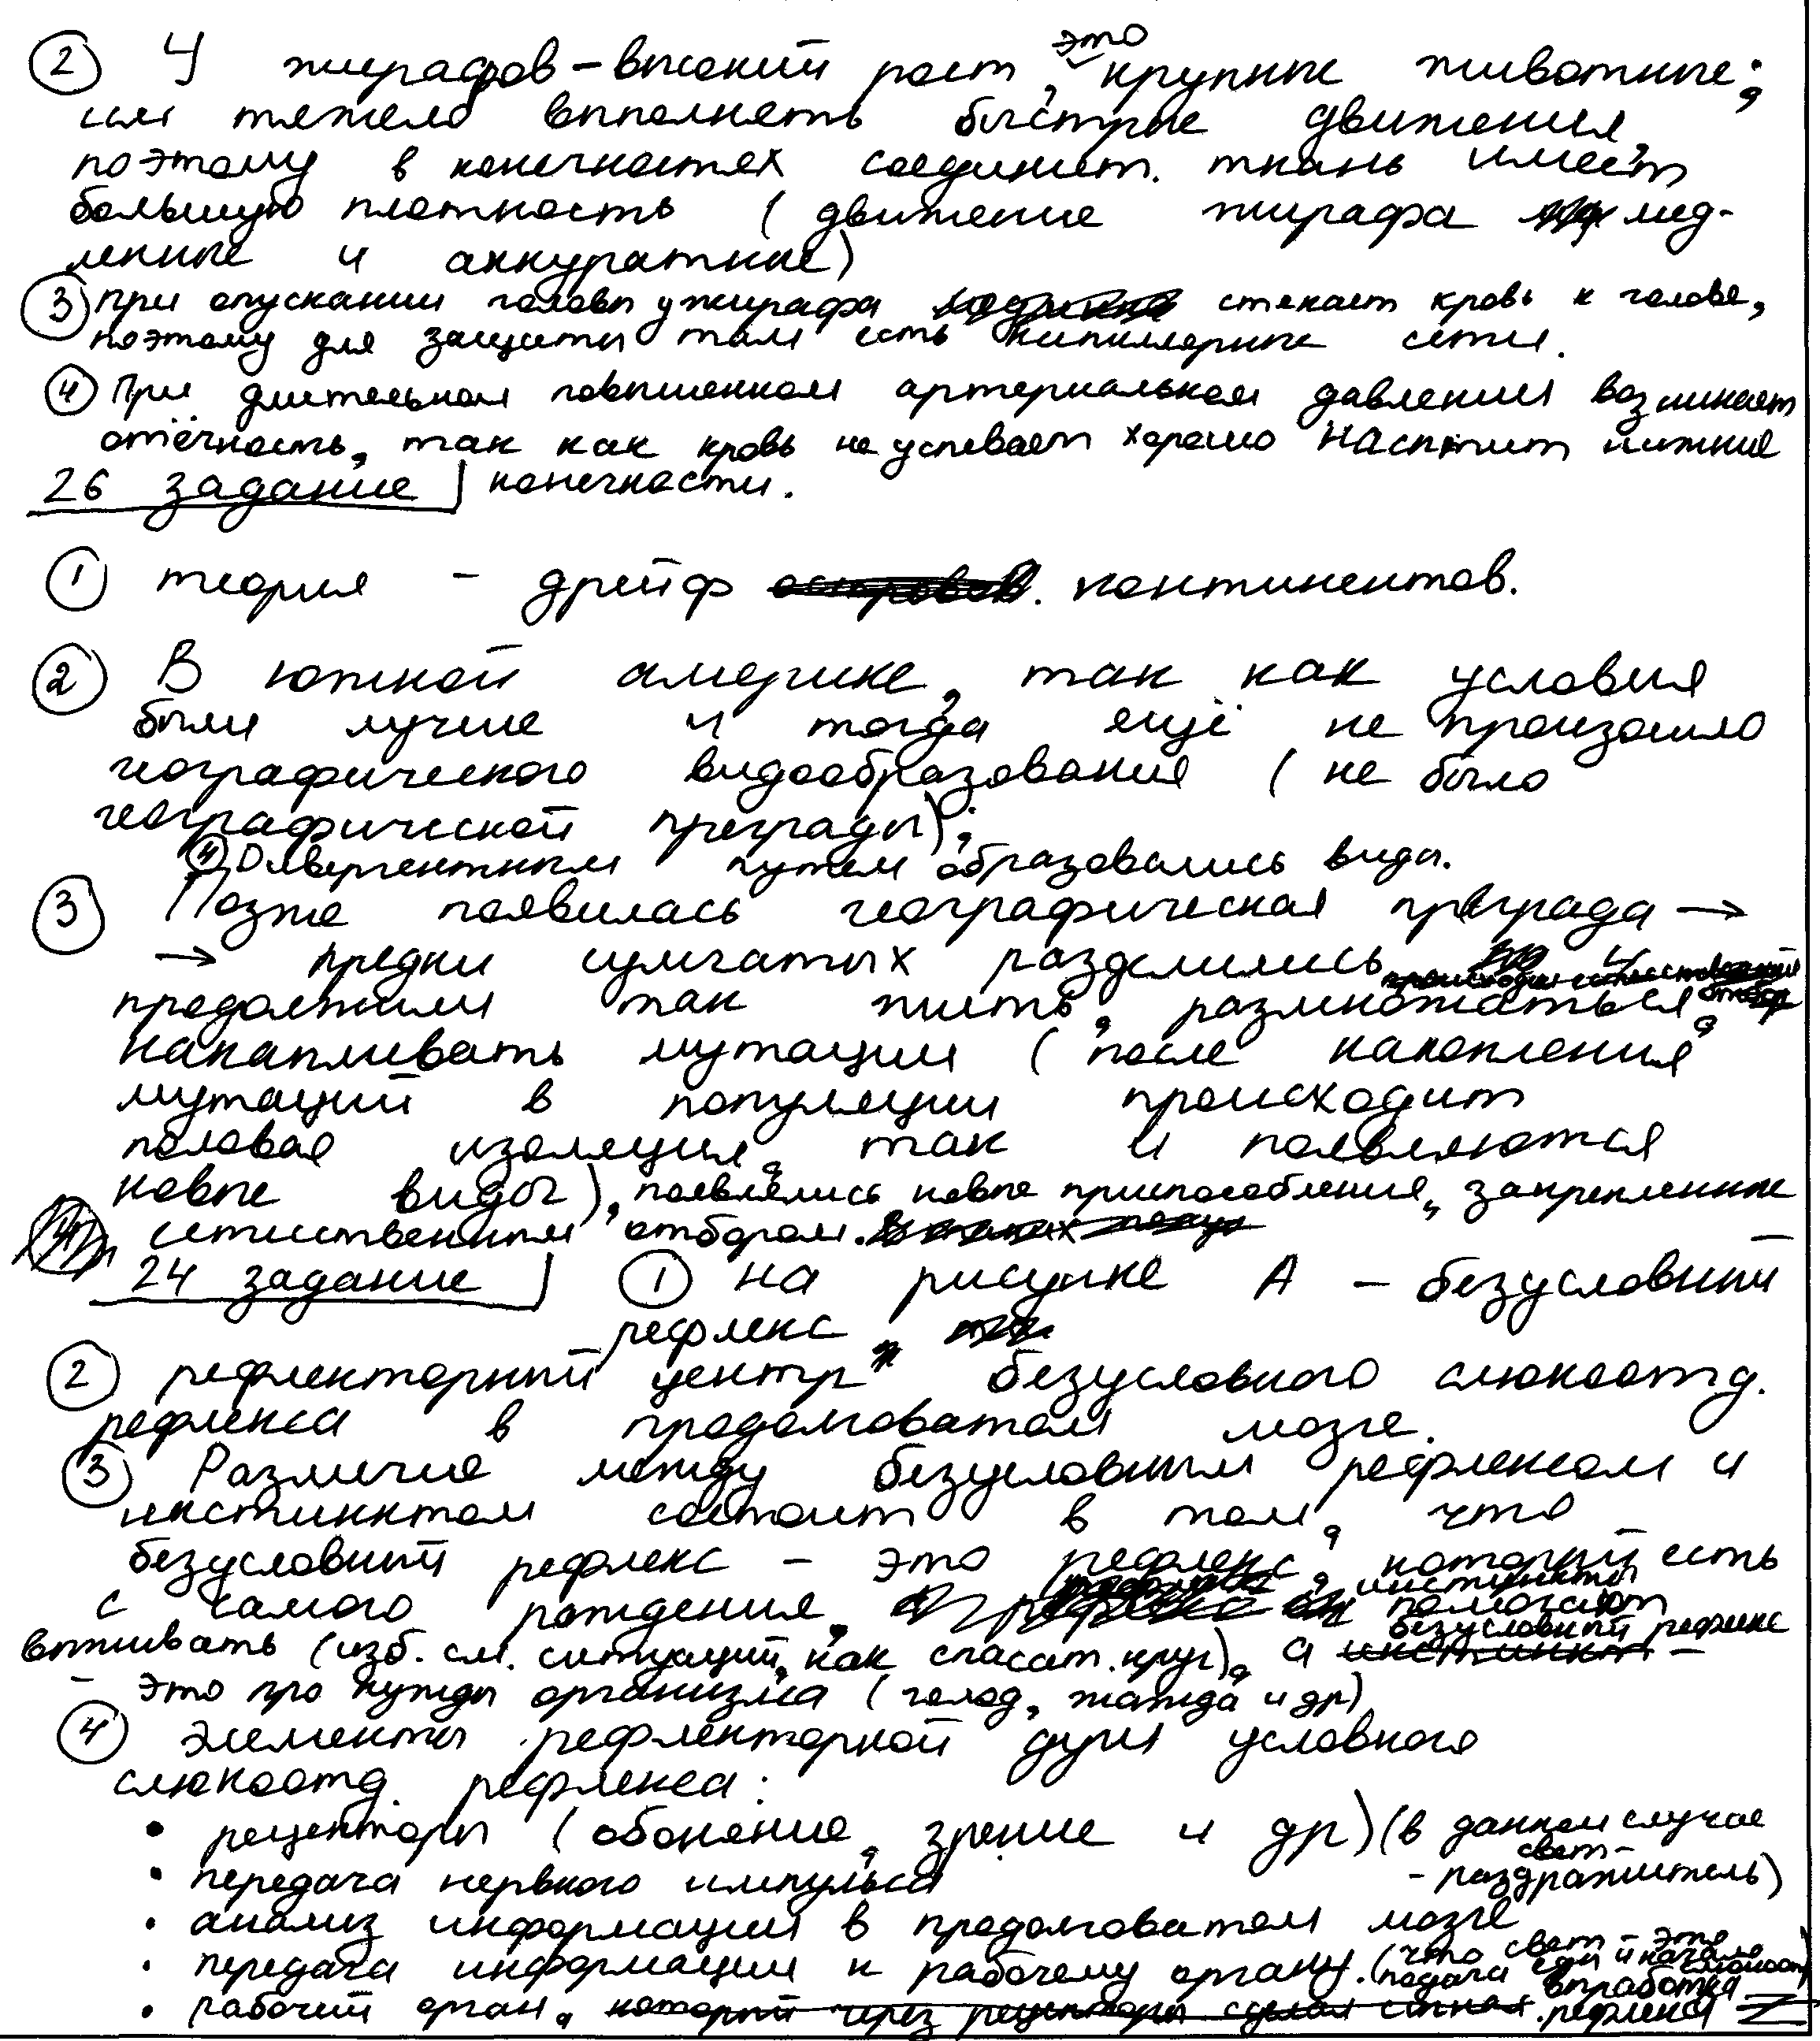 ② У жирафов – высокий рост, это крупные животные;
им тяжело выполнять быстрые движения,
поэтому в конечностях соединит. ткань имеет
большую плотность (движение жирафа мед-
ленные и аккуратные)
③ При опускании головы у жирафа стекает кровь к голове,
поэтому для защиты там есть капиллярные сети.
④ При длительном повышенном артериальном давлении возникает
отёчность, так как кровь не успевает хорошо насытит нижние
конечности.
26 задание
① теория – дрейф континентов.
② В южной америке, так как условия
были лучше и тогда ещё не произошло
географического видообразования (не было
географической преграды);
④ Дивергентным путем образовались виды.
③ Позже появилась географическая преграда →
→ предки сумчатых разделились и
продолжили так жить, размножаться,
накапливать мутации (после накопления
мутаций в популяции происходит
половая изоляция, так и появляются
новые виды), появлялись новые приспособления, закрепленные
естественным отбором.
24 задание ① на рисунке А – безусловный
рефлекс,
② рефлекторный центр безусловного слюноотд.
рефлекса в продолговатом мозге.
③ Различие между безусловным рефлексом и
инстинктом состоит в том, что
безусловный рефлекс – это рефлекс, который есть
с самого рождения, инстинкты помогают
выживать (изб. см. ситуаций, как спасат. круг), а безусловный рефлекс –
– это про нужды организма (голод, жажда и др)
④ элементы рефлекторной дуги условного
слюноотд. рефлекса:
• рецепторы (обоняние, зрение и др) (в данном случае
свет – раздражитель)
• передача нервного импульса
• анализ информации в продолговатом мозге
• передача информации к рабочему органу. (что свет – это
подача еды и начало
выработка
• рабочий орган, рефлекса